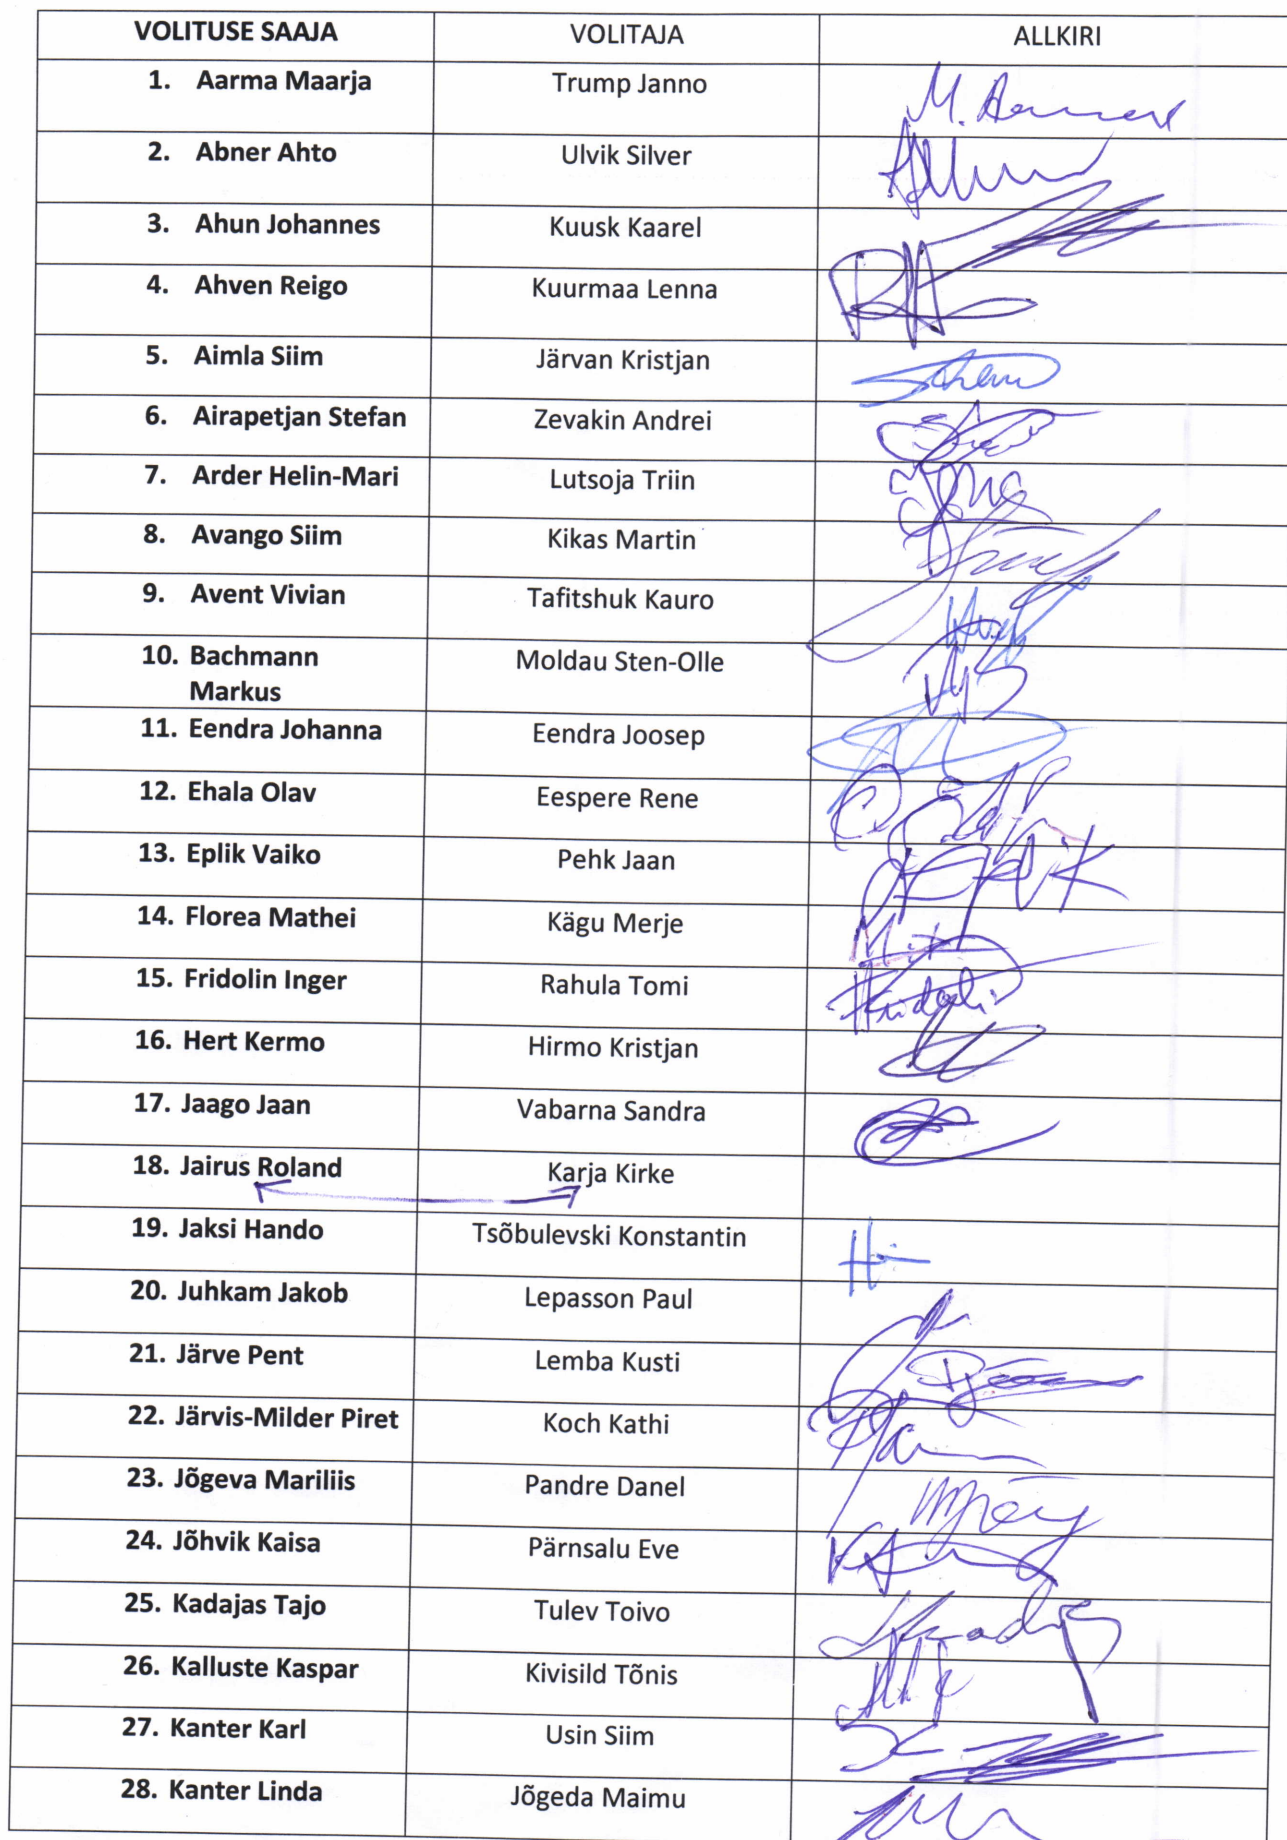 VOLITUSE SAAJA VOLITAJA ALLKIRI
1. Aarma Maarja Trump Janno
2. Abner Ahto Ulvik Silver
3. Ahun Johannes Kuusk Kaarel
4. Ahven Reigo Kuurmaa Lenna
5. Aimla Siim Järvan Kristjan
6. Airapetjan Stefan Zevakin Andrei
7. Arder Helin-Mari Lutsoja Triin
8. Avango Siim Kikas Martin
9. Avent Vivian Tafitshuk Kauro
10. Bachmann Moldau Sten-Olle
Markus
11. Eendra Johanna Eendra Joosep
12. Ehala Olav Eespere Rene
13. Eplik Vaiko Pehk Jaan
14. Florea Mathei Kägu Merje
15. Fridolin Inger Rahula Tomi
16. Hert Kermo Hirmo Kristjan
17. Jaago Jaan Vabarna Sandra
18. Jairus Roland Karja Kirke
19. Jaksi Hando Tsõbulevski Konstantin
20. Juhkam Jakob Lepasson Paul
21. Järve Pent Lemba Kusti
22. Järvis-Milder Piret Koch Kathi
23. Jõgeva Mariliis Pandre Danel
24. Jõhvik Kaisa Pärnsalu Eve
25. Kadajas Tajo Tulev Toivo
26. Kalluste Kaspar Kivisild Tõnis
27. Kanter Karl Usin Siim
28. Kanter Linda Jõgeda Maimu